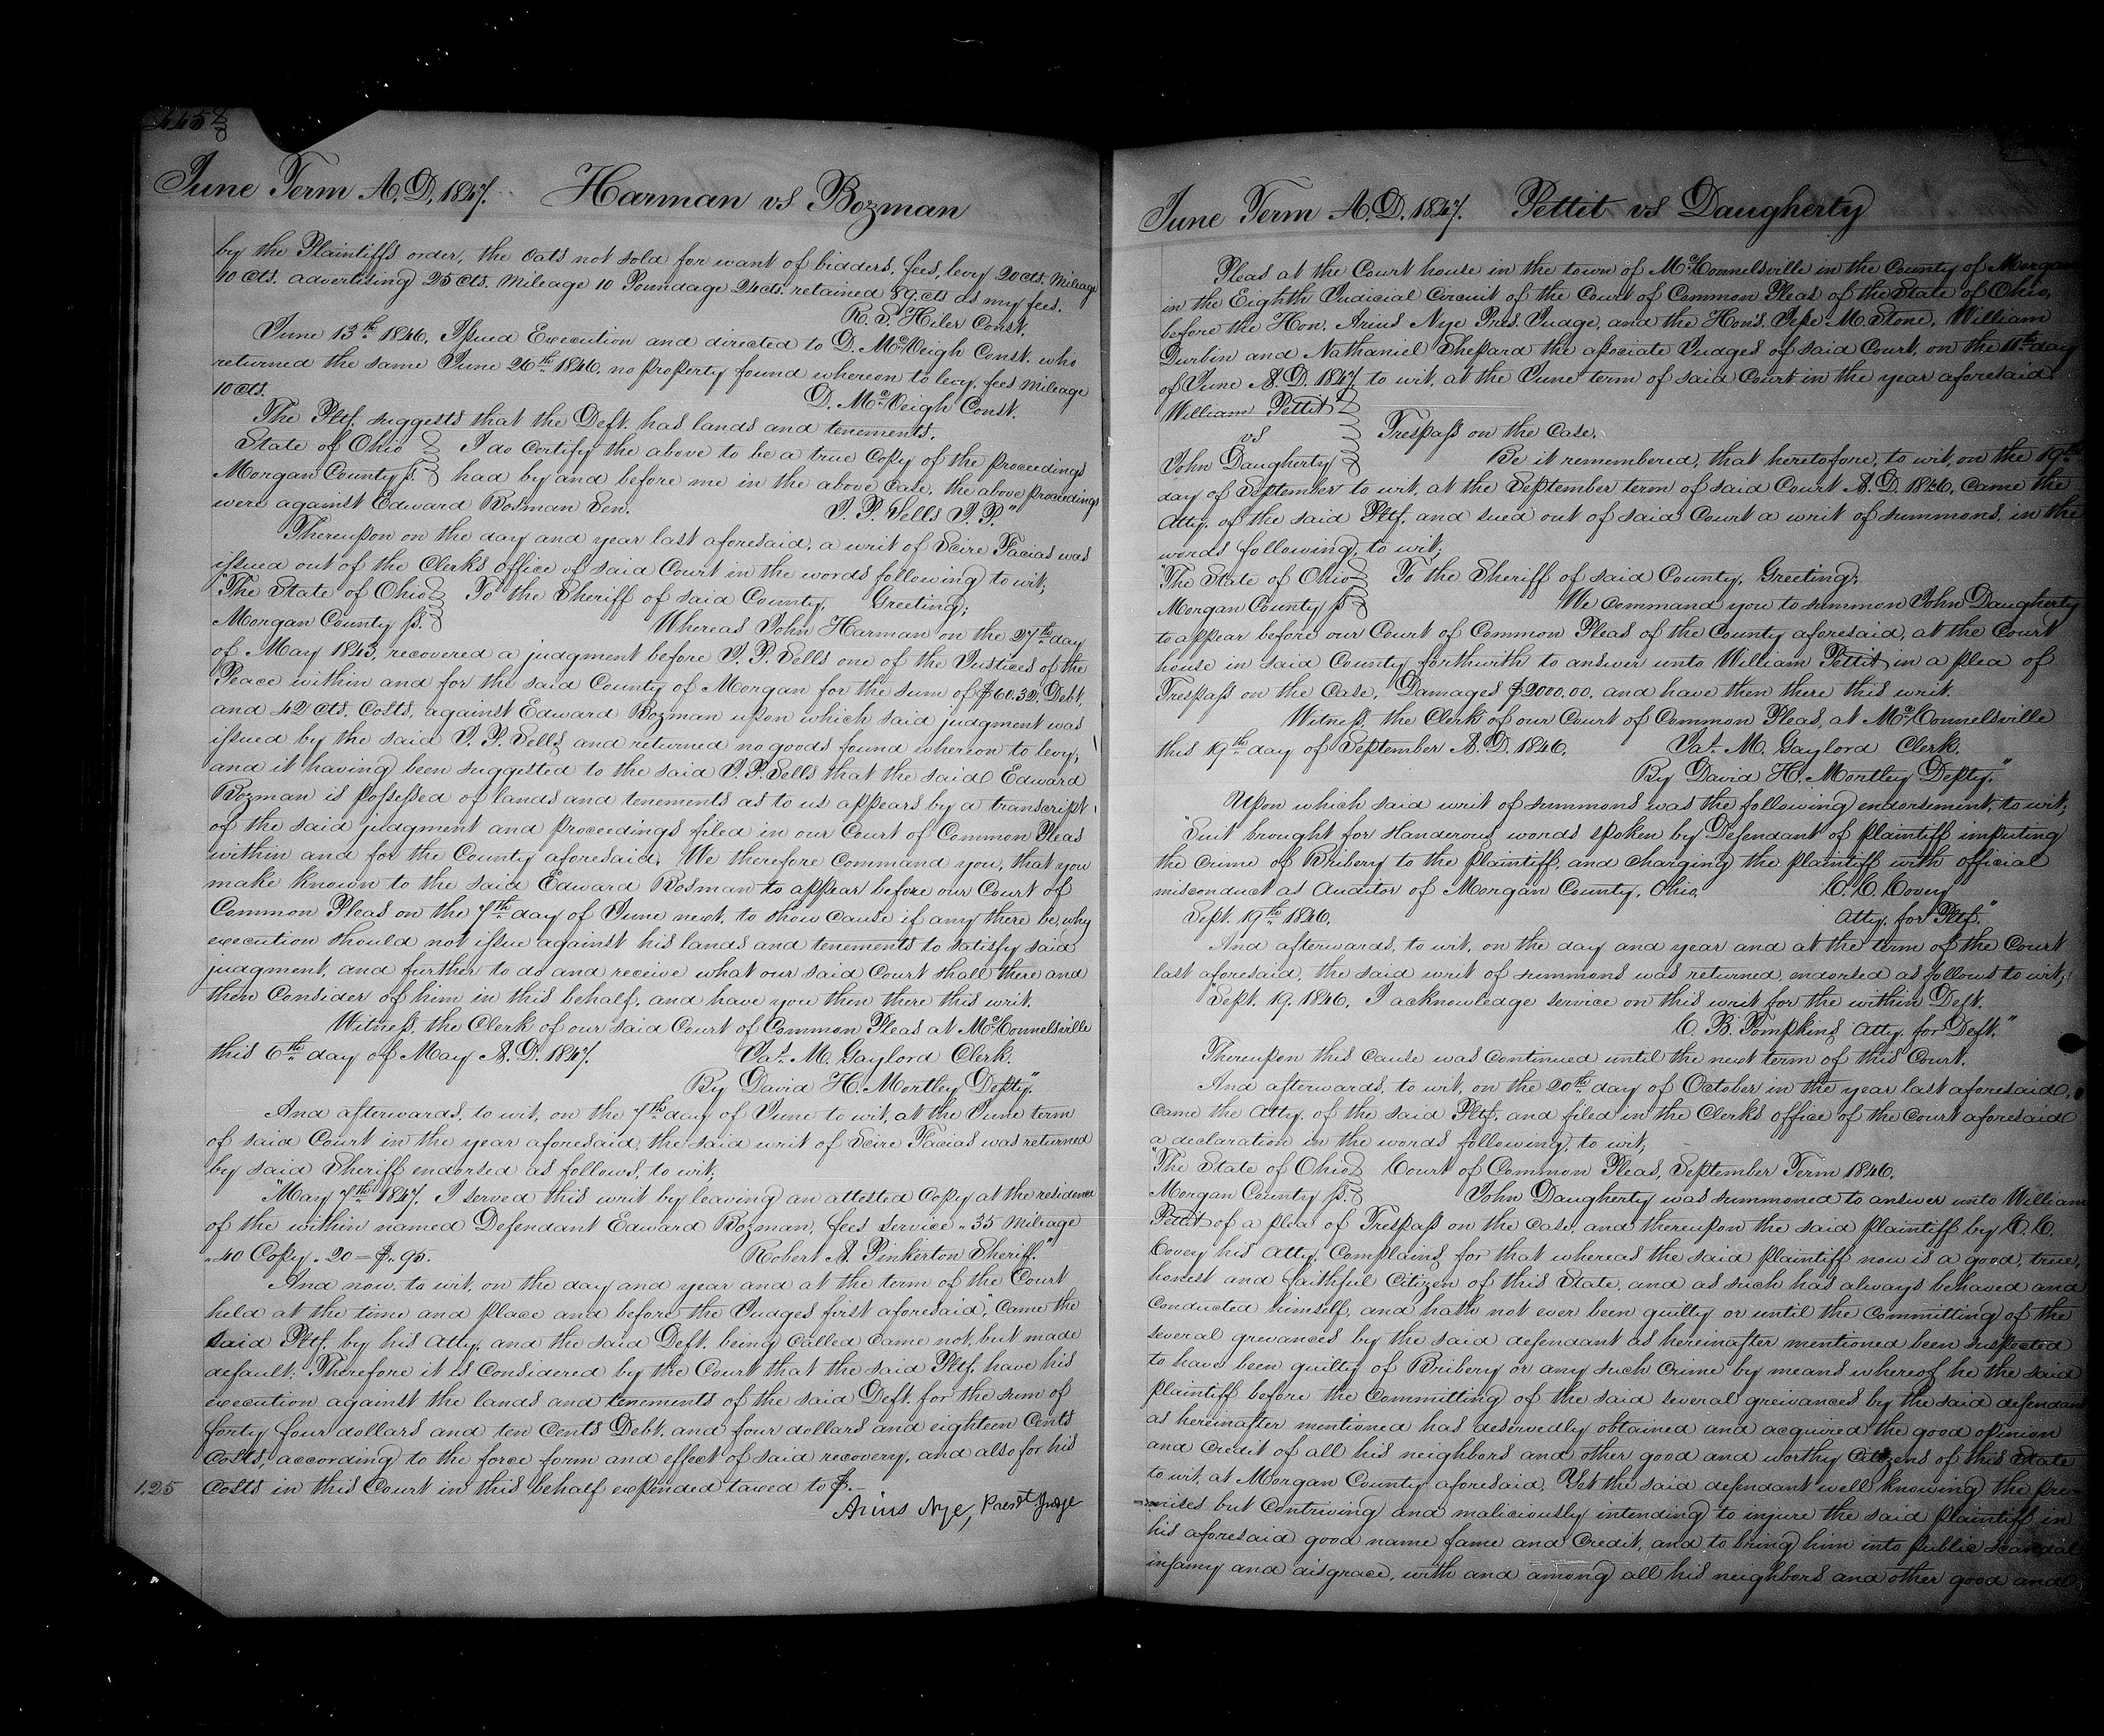 June Term A.D. 1847. Harman vs Bozman
by the Plaintiffs order, the oats not sold for want of bidders, fees, levy 20 cts. Mileage
10 cts. advertising 25 cts. Mileage 10 Poundage 24 cts. retained 89. cts as my fees.
R. S. Hiler Const.
June 13th 1846, Issued Execution and directed to D. McVeigh Const. who
returned the same June 26th 1846, no property found whereon to levy, fees mileage
10 cts. D. McVeigh Const.
The Pltf. suggests that the Deft. has lands and tenements.
State of Ohio I do certify the above to be a true copy of the proceedings
Morgan County ss. had by and before me in the above case, the above proceedings
were against Edward Bosman Sen. J. P. Sells J. P."
Thereupon on the day and year last aforesaid, a writ of Scire Facias was
issued out of the Clerks office of said Court in the words following to wit;
"The State of Ohio To the Sheriff of said County, Greeting;
Morgan County ss. Whereas John Harman on the 27th day
of May 1843, recovered a judgment before J. P. Sells one of the Justices of the
Peace within and for the said County of Morgan for the sum of $60.32, Debt,
and 42 cts. Costs, against Edward Bozman upon which said judgment was
issued by the said J. P. Sells and returned no goods found whereon to levy;
and it having been suggested to the said J. P. Sells that the said Edward
Bozman is possessed of lands and tenements as to us appears by a transcript
of the said judgment and proceedings filed in our Court of Common Pleas
within and for the County aforesaid. We therefore command you, that you
make known to the said Edward Bosman to appear before our Court of
Common Pleas on the 7th day of June next, to show cause if any there be, why
execution should not issue against his lands and tenements to satisfy said
judgment, and further to do and receive what our said Court shall there and
then consider of him in this behalf, and have you then there this writ.
Witness, the Clerk of our said Court of Common Pleas at McConnelsville
this 6th day of May A.D. 1847. Jas. M. Gaylord Clerk.
By David H. Mortley Depty."
And afterwards, to wit, on the 7th day of June to wit, at the June term
of said Court in the year aforesaid, the said writ of Scire Facias was returned
by said Sheriff endorsed as follows, to wit;
"May 7th 1847, I served this writ by leaving an attested copy at the residence
of the within named Defendant Edward Bozman, fees service " 35 mileage
" 40 Copy " 20 = $ " 95. Robert A. Pinkerton Sheriff."
And now, to wit, on the day and year and at the term of the Court
held at the time and place and before the Judges first aforesaid, came the
said Pltf. by his Atty. and the said Deft. being called came not, but made
default; Therefore it is considered by the Court that the said Pltf. have his
execution against the lands and tenements of the said Deft. for the sum of
forty four dollars and ten cents Debt, and four dollars and eighteen cents
costs, according to the force form and effect of said recovery, and also for his
1.25 costs in this Court in this behalf expended taxed to $.
Arius Nye, Presdt Judge
June Term A.D. 1847. Pettit vs Daugherty
Pleas at the Court house in the town of McConnelsville in the County of Morgan
in the Eighth Judicial Circuit of the Court of Common Pleas of the State of Ohio,
before the Hon. Arius Nye Pres. Judge, and the Hon's. Jesse M. Stone, William
Durbin and Nathaniel Shepard the associate Judges of said Court, on the 11th day
of June A.D. 1847, to wit, at the June term of said Court in the year aforesaid.
William Pettit
vs Trespass on the Case.
John Daugherty Be it remembered, that heretofore, to wit, on the 19th
day of September to wit, at the September term of said Court A.D. 1846, came the
Atty. of the said Pltf. and sued out of said Court a writ of summons, in the
words following, to wit;
"The State of Ohio To the Sheriff of said County, Greeting,
Morgan County ss We command you to summon John Daugherty
to appear before our Court of Common Pleas of the County aforesaid, at the Court
house in said County forthwith to answer unto William Pettit in a plea of
Trespass on the Case, Damages $2000.00, and have then there this writ.
Witness, the Clerk of our Court of Common Pleas, at McConnelsville
this 19th day of September A.D. 1846. Jas. M. Gaylord Clerk.
By David H. Mortley Depty."
Upon which said writ of summons was the following endorsement, to wit;
"Suit brought for slanderous words spoken by Defendant of plaintiff imputing
the crime of Bribery to the plaintiff, and charging the plaintiff with official
misconduct as Auditor of Morgan County, Ohio. C. C. Covey
Sept. 19th 1846. Atty. for Pltf."
And afterwards, to wit, on the day and year and at the term of the Court
last aforesaid, the said writ of summons was returned, endorsed as follows to wit;
"Sept. 19, 1846, I acknowledge service on this writ for the within Deft.
C. B. Tompkins Atty. for Deft."
Thereupon this cause was continued until the next term of this Court.
And afterwards, to wit, on the 20th day of October in the year last aforesaid,
came the Atty. of the said Pltf. and filed in the Clerks office of the Court aforesaid
a declaration in the words following, to wit;
"The State of Ohio Court of Common Pleas, September Term 1846.
Morgan County ss. John Daugherty was summoned to answer unto William
Pettit of a plea of Trespass on the Case, and thereupon the said plaintiff by C. C.
Covey his Atty. Complains, for that whereas the said plaintiff now is a good, true,
honest and faithful citizen of this State, and as such has always behaved and
conducted himself, and hath not ever been guilty or until the committing of the
several greivances by the said defendant as hereinafter mentioned been suspected
to have been guilty of Bribery or any such crime by means whereof he the said
plaintiff before the committing of the said several greivances by the said defendant
as hereinafter mentioned has deservedly obtained and acquired the good opinion
and credit of all his neighbors and other good and worthy citizens of this State
to wit, at Morgan County aforesaid. Yet the said defendant well knowing the pre-
mises but contriving and maliciously intending to injure the said plaintiff in
his aforesaid good name fame and credit, and to bring him into public scandal
infamy and disgrace, with and among all his neighbors and other good and